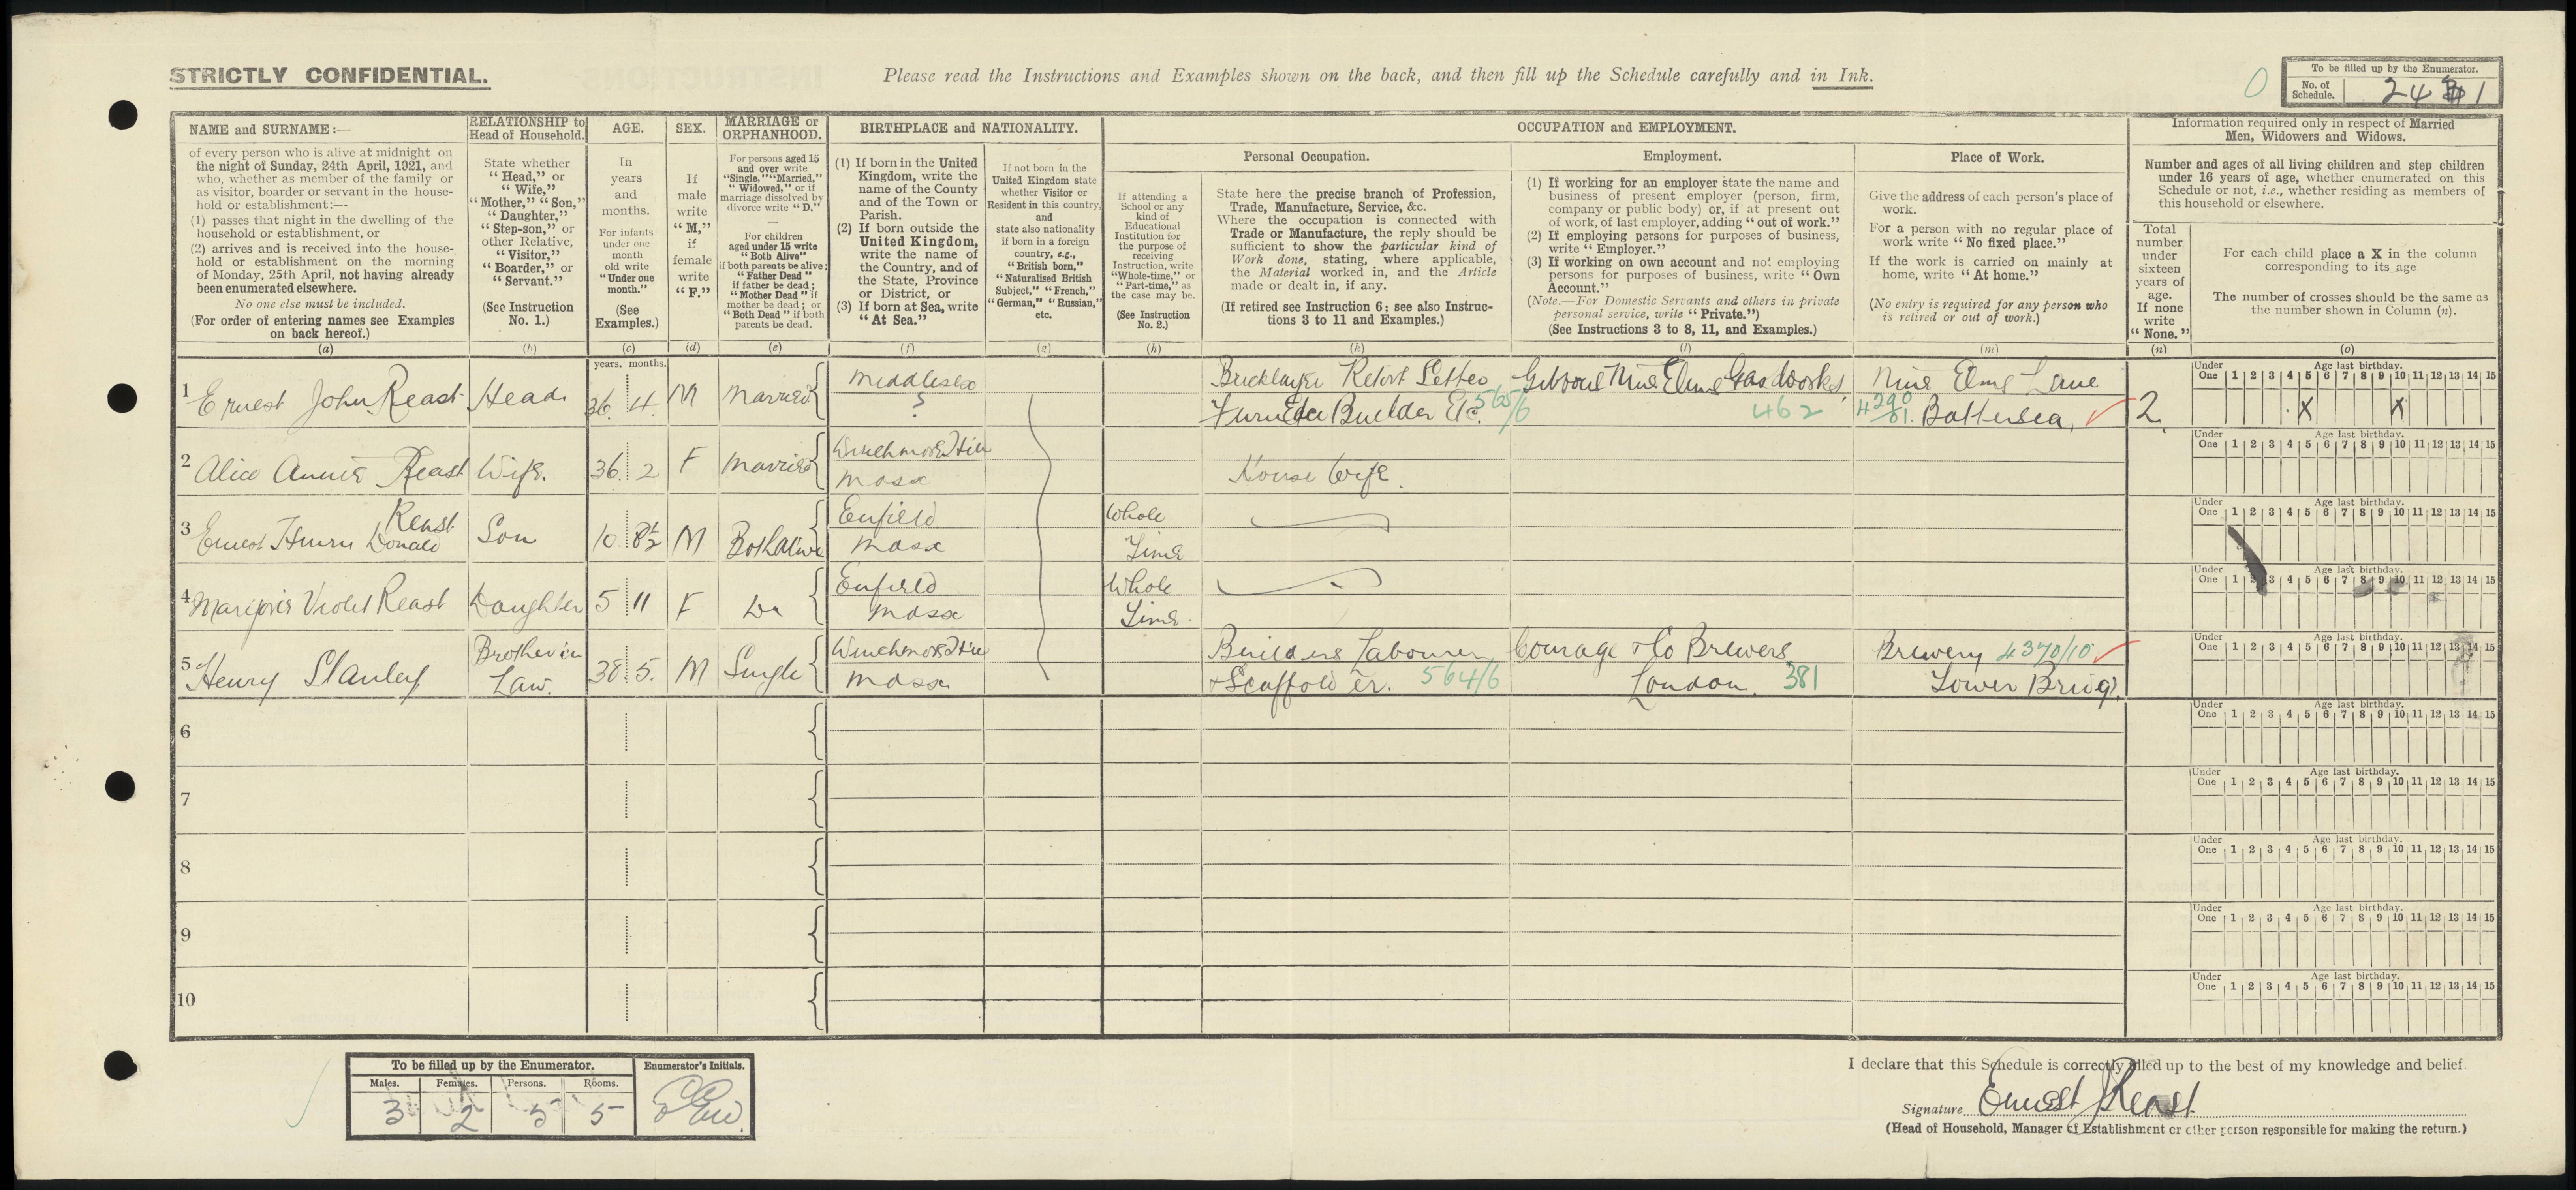 STRICTLY CONFIDENTIAL.
Please read the Instructions and Examples shown on the back, and then fill up the Schedule carefully and in Ink.
0
To be filled up by the Enumerator.
No. of Schedule.
241
NAME and SURNAME:—
of every person who is alive at midnight on
the night of Sunday, 24th April, 1921, and
who, whether as member of the family or
as visitor, boarder or servant in the house-
hold or establishment:—
(1) passes that night in the dwelling of the
household or establishment, or
(2) arrives and is received into the house-
hold or establishment on the morning
of Monday, 25th April, not having already
been enumerated elsewhere.
No one else must be included.
(For order of entering names see Examples
on back hereof.)
(a)
RELATIONSHIP to
Head of Household.
State whether
"Head," or
"Wife,"
"Mother," "Son,"
"Daughter,"
"Step-son," or
other Relative,
"Visitor,"
"Boarder," or
"Servant."
(See Instruction
No. 1.)
(b)
AGE.
In
years
and
months.
For infants
under one
month
old write
"Under one
month."
(See
Examples.)
(c)
years. months.
SEX.
If
male
write
"M,"
if
female
write
"F."
(d)
MARRIAGE or
ORPHANHOOD.
For persons aged 15
and over write
"Single," "Married,"
"Widowed," or if
marriage dissolved by
divorce write "D."
—
For children
aged under 15 write
"Both Alive"
if both parents be alive;
"Father Dead"
if father be dead;
"Mother Dead" if
mother be dead; or
"Both Dead" if both
parents be dead.
(e)
BIRTHPLACE and NATIONALITY.
(1) If born in the United
Kingdom, write the
name of the County
and of the Town or
Parish.
(2) If born outside the
United Kingdom,
write the name of
the Country, and of
the State, Province
or District, or
(3) If born at Sea, write
"At Sea."
(f)
If not born in the
United Kingdom state
whether Visitor or
Resident in this country,
and
state also nationality
if born in a foreign
country, e.g.,
"British born,"
"Naturalised British
Subject," "French,"
"German," "Russian,"
etc.
(g)
OCCUPATION and EMPLOYMENT.
If attending a
School or any
kind of
Educational
Institution for
the purpose of
receiving
Instruction, write
"Whole-time," or
"Part-time," as
the case may be.
(See Instruction
No. 2.)
(h)
Personal Occupation.
State here the precise branch of Profession,
Trade, Manufacture, Service, &c.
Where the occupation is connected with
Trade or Manufacture, the reply should be
sufficient to show the particular kind of
Work done, stating, where applicable,
the Material worked in, and the Article
made or dealt in, if any.
(If retired see Instruction 6; see also Instruc-
tions 3 to 11 and Examples.)
(k)
Employment.
(1) If working for an employer state the name and
business of present employer (person, firm,
company or public body) or, if at present out
of work, of last employer, adding "out of work."
(2) If employing persons for purposes of business,
write "Employer."
(3) If working on own account and not employing
persons for purposes of business, write "Own
Account."
(Note.—For Domestic Servants and others in private
personal service, write "Private.")
(See Instructions 3 to 8, 11, and Examples.)
(l)
Place of Work.
Give the address of each person's place of
work.
For a person with no regular place of
work write "No fixed place."
If the work is carried on mainly at
home, write "At home."
(No entry is required for any person who
is retired or out of work.)
(m)
Information required only in respect of Married
Men, Widowers and Widows.
Number and ages of all living children and step children
under 16 years of age, whether enumerated on this
Schedule or not, i.e., whether residing as members of
this household or elsewhere.
Total
number
under
sixteen
years of
age.
If none
write
"None."
(n)
For each child place a X in the column
corresponding to its age
The number of crosses should be the same as
the number shown in Column (n).
(o)
1 Ernest John Reast Head 36 4 M Married Middlesex ? Bricklayer Retort Setter
Furnace Builder Etc. 565/6 Gibbons Nine Elms Gas Works, 462 Nine Elms Lane
4290/01. Battersea, 2
Under One 1 2 3 4 5 6 7 8 9 10 11 12 13 14 15
Age last birthday.
X X
2 Alice Annie Reast Wife. 36 2 F Married Winchmore Hill
Mdsx House Wife.
Under One 1 2 3 4 5 6 7 8 9 10 11 12 13 14 15
Age last birthday.
3 Ernest Henry Donald Reast Son 10 8½ M Both alive Enfield
Mdsx Whole
Time
Under One 1 2 3 4 5 6 7 8 9 10 11 12 13 14 15
Age last birthday.
4 Marjorie Violet Reast Daughter 5 11 F Do Enfield
Mdsx Whole
Time
Under One 1 2 3 4 5 6 7 8 9 10 11 12 13 14 15
Age last birthday.
5 Henry Stanley Brother in
Law. 38 5. M Single Winchmore Hill
Mdsx Builders Labourer
& Scaffolder. 564/6 Courage & Co Brewers
London. 381 Brewery 4370/10
Tower Bridge.
Under One 1 2 3 4 5 6 7 8 9 10 11 12 13 14 15
Age last birthday.
6
Under One 1 2 3 4 5 6 7 8 9 10 11 12 13 14 15
Age last birthday.
7
Under One 1 2 3 4 5 6 7 8 9 10 11 12 13 14 15
Age last birthday.
8
Under One 1 2 3 4 5 6 7 8 9 10 11 12 13 14 15
Age last birthday.
9
Under One 1 2 3 4 5 6 7 8 9 10 11 12 13 14 15
Age last birthday.
10
Under One 1 2 3 4 5 6 7 8 9 10 11 12 13 14 15
Age last birthday.
To be filled up by the Enumerator.
Males. Females. Persons. Rooms.
3 2 5 5
Enumerator's Initials.
I declare that this Schedule is correctly filled up to the best of my knowledge and belief.
Signature Ernest J Reast
(Head of Household, Manager of Establishment or other person responsible for making the return.)